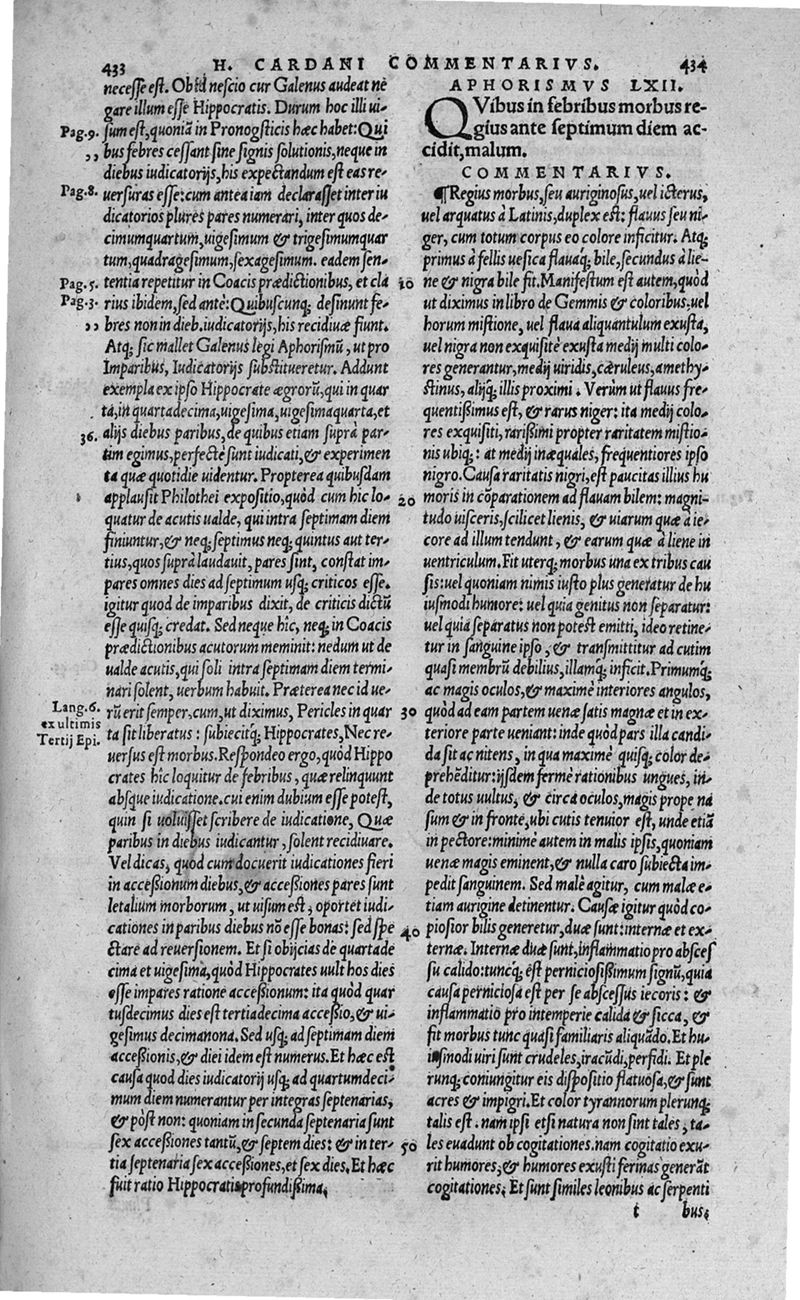 433 H. CARDANI COMMENTARIVS. 434
necesse est. Ob id nescio cur Galenus audeat ne
gare illum esse Hippocratis. Durum hoc illi ui⸗
Pag.9. sum est, quoniã in Pronogsticis hæc habet: Qui
,, bus febres cessant sine signis solutionis, neque in
diebus iudicatorijs, his expectandum est eas re⸗
Pag.8. uersuras esse: cum antea iam declarasset inter iu
dicatorios plures pares numerari, inter quos de⸗
cimumquartum, uigesimum & trigesimumquar
tum, quadragesimum, sexagesimum. eadem sen⸗
Pag.5. tentia repetitur in Coacis prædictionibus, et cla
Pag.3. rius ibidem, sed antè: Quibuscunq; desinunt fe⸗
,, bres non in dieb. iudicatorijs, his recidiuæ fiunt.
Atq; sic mallet Galenus legi Aphorismũ, ut pro
Imparibus, Iudicatorijs substitueretur. Addunt
exempla ex ipso Hippocrate ægrorũ, qui in quar
ta, in quartadecima, uigesima, uigesimaquarta, et
36. alijs diebus paribus, de quibus etiam suprà par⸗
tim egimus, perfectè sunt iudicati, & experimen
ta quæ quotidie uidentur. Propterea quibusdam
applausit Philothei expositio, quòd cum hic lo⸗
quatur de acutis ualde, qui intra septimam diem
finiuntur, & neq; septimus neq; quintus aut ter⸗
tius, quos suprà laudauit, pares sint, constat im⸗
pares omnes dies ad septimum usq; criticos esse.
igitur quod de imparibus dixit, de criticis dictũ
esse quisq; credat. Sed neque hîc, neq; in Coacis
prædictionibus acutorum meminit: nedum ut de
ualde acutis, qui soli intra septimam diem termi⸗
nari solent, uerbum habuit. Præterea nec id ue⸗
Lang.6. rũ erit semper, cum, ut diximus, Pericles in quar
ex ultimis ta sit liberatus: subiecitq; Hippocrates, Nec re⸗
Tertij Epi. uersus est morbus. Respondeo ergo, quòd Hippo
crates hîc loquitur de febribus, quæ relinquunt
absque iudicatione. cui enim dubium esse potest,
quin si uoluisset scribere de iudicatione, Quæ
paribus in diebus iudicantur, solent recidiuare.
Vel dicas, quod cum docuerit iudicationes fieri
in accessionum diebus, & accessiones pares sunt
letalium morborum, ut uisum est, oportet iudi⸗
cationes in paribus diebus nõ esse bonas: sed spe
ctare ad reuersionem. Et si obijcias de quartade
cima et uigesima, quòd Hippocrates uult hos dies
esse impares ratione accessionum: ita quòd quar
tusdecimus dies est tertiadecima accessio, & ui⸗
gesimus decimanona. Sed usq; ad septimam diem
accessionis, & diei idem est numerus. Et hæc est
causa quod dies iudicatorij usq; ad quartumdeci⸗
mum diem numerantur per integras septenarias,
& pòst non: quoniam in secunda septenaria sunt
sex accessiones tantũ, & septem dies: & in ter⸗
tia septenaria sex accessiones, et sex dies. Et hæc
fuit ratio Hippocratis profundissima.
APHORISMVS LXII.
QVibus in febribus morbus re⸗
gius ante septimum diem ac⸗
cidit, malum.
COMMENTARIVS.
¶Regius morbus, seu auriginosus, uel icterus,
uel arquatus à Latinis, duplex est: flauus seu ni⸗
ger, cum totum corpus eo colore inficitur. Atq;
primus à fellis uesica flauaq; bile, secundus à lie⸗
10 ne & nigra bile fit. Manifestum est autem, quòd
ut diximus in libro de Gemmis & coloribus, uel
horum mistione, uel flaua aliquantulum exusta,
uel nigra non exquisitè exusta medij multi colo⸗
res generantur, medij uiridis, cæruleus, amethy⸗
stinus, alijq; illis proximi. Verùm ut flauus fre⸗
quentissimus est, & rarus niger: ita medij colo⸗
res exquisiti, rarissimi propter raritatem mistio⸗
nis ubiq;: at medij inæquales, frequentiores ipso
nigro. Causa raritatis nigri, est paucitas illius hu
20 moris in cõparationem ad flauam bilem: magni⸗
tudo uisceris, scilicet lienis, & uiarum quæ à ie⸗
core ad illum tendunt, & earum quæ à liene in
uentriculum. Fit uterq; morbus una ex tribus cau
sis: uel quoniam nimis iusto plus generatur de hu
iusmodi humore: uel quia genitus non separatur:
uel quia separatus non potest emitti, ideo retine⸗
tur in sanguine ipso, & transmittitur ad cutim
quasi membrũ debilius, illamq; inficit. Primumq;
ac magis oculos, & maximè interiores angulos,
30 quòd ad eam partem uenæ satis magnæ et in ex⸗
teriore parte ueniant: inde quòd pars illa candi⸗
da sit ac nitens, in qua maximè quisq; color de⸗
prehẽditur: ijsdem fermè rationibus ungues, in⸗
de totus uultus, & circa oculos, magis prope na
sum & in fronte, ubi cutis tenuior est, unde etiã
in pectore: minimè autem in malis ipsis, quoniam
uenæ magis eminent, & nulla caro subiecta im⸗
pedit sanguinem. Sed malè agitur, cum malæ e⸗
tiam aurigine detinentur. Causæ igitur quòd co⸗
40 piosior bilis generetur, duæ sunt: internæ et ex⸗
ternæ. Internæ duæ sunt, inflammatio pro absces
su calido: tuncq; est perniciosissimum signũ, quia
causa perniciosa est per se abscessus iecoris: &
inflammatio pro intemperie calida & sicca, &
fit morbus tunc quasi familiaris aliquãdo. Et hu⸗
iusmodi uiri sunt crudeles, iracũdi, perfidi. Et ple
runq; coniungitur eis dispositio flatuosa, & sunt
acres & impigri. Et color tyrannorum plerunq;
talis est. nam ipsi etsi natura non sint tales, ta⸗
50 les euadunt ob cogitationes. nam cogitatio exu⸗
rit humores, & humores exusti ferinas generãt
cogitationes. Et sunt similes leonibus ac serpenti
t bus,